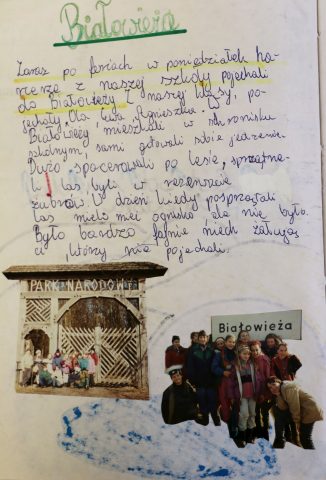 Białowieża
Zaraz po feriach w poniedziałek ha-
rcerze z naszej szkoły pojechali
do Białowieży. Z naszej klasy, po-
jechały: Ola, Ewa, Agnieszka.
Białowieży mieszkali w schronisku
szkolnym, sami gotowali sobie jedzenie.
Dużo spacerowali po lesie, sprząta-
li las byli w rezerwacie
żubrów. W dzień kiedy posprzątali
las mieli mieć ognisko, ale nie było.
Było bardzo fajnie niech żałują
ci, którzy nie pojechali.
PARK NARODOWY
Białowieża